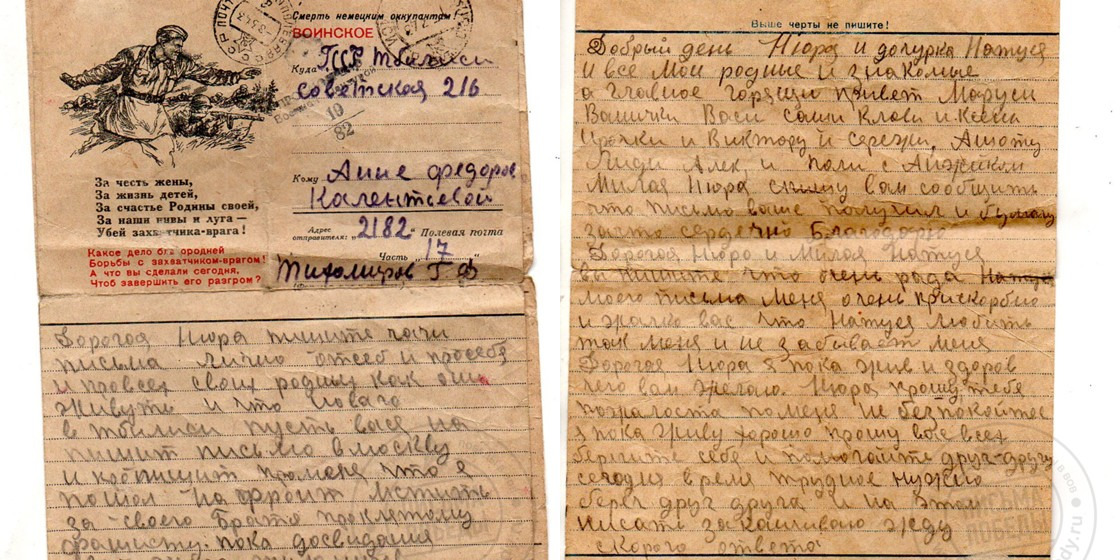 Смерть немецким оккупантам
ВОИНСКОЕ
Куда ГССР Тбилиси
советская 216
19
82
Кому Анне федоров
Калентьевой
Адрес отправителя: „2182" Полевая почта
Часть „17
Тихомиров Г Ф
За честь жены,
За жизнь детей,
За счастье Родины своей,
За наши нивы и луга —
Убей захватчика-врага!
Какое дело благородней
Борьбы с захватчиком-врагом!
А что вы сделали сегодня,
Чтоб завершить его разгром?
Дорогая Нюра пишите чачи
письма лично отсеб и просебя
и провсех своих родных как они
живуть и что новаго
в тбилиси пусть вася на
пишит письмо в москву
и пропишит промене что я
пошол на фронт мстить
за своего Брата проклятому
фашисту. пока досвидания
Выше черты не пишите!
Добрый день Нюра и дочурка Натуся
и все мои родные и знакомые
а главное горящи привет Маруси
Ванички Васи саши Клави и
Юрочки и Виктору и сережи, Ашоту
Лиди Алек, и поли с
Милая Нюра спишу вам сообщить
что письмо ваше получил и бумагу
зашто сердечно Благодорю
Дорогая Нюра и Милая Натуся
вы пишите что очень рада Натуся
моего письма меня очень прискорбно
и жалко вас что Натуся любить
так меня и не забивает меня
Дорогая Нюра я пока жив и здоров
чего вам желаю. Нюра прошу тебя
пожалоста помене не безпокойтес
я пока живу хорошо прошу вас всех
берегите себя и помогайте друг-другу
сегодня время трудное нужно
берг друг друга и на этом
писать закончиваю жду
скорого ответа
ПИСЬМА
ПОБЕДЫ